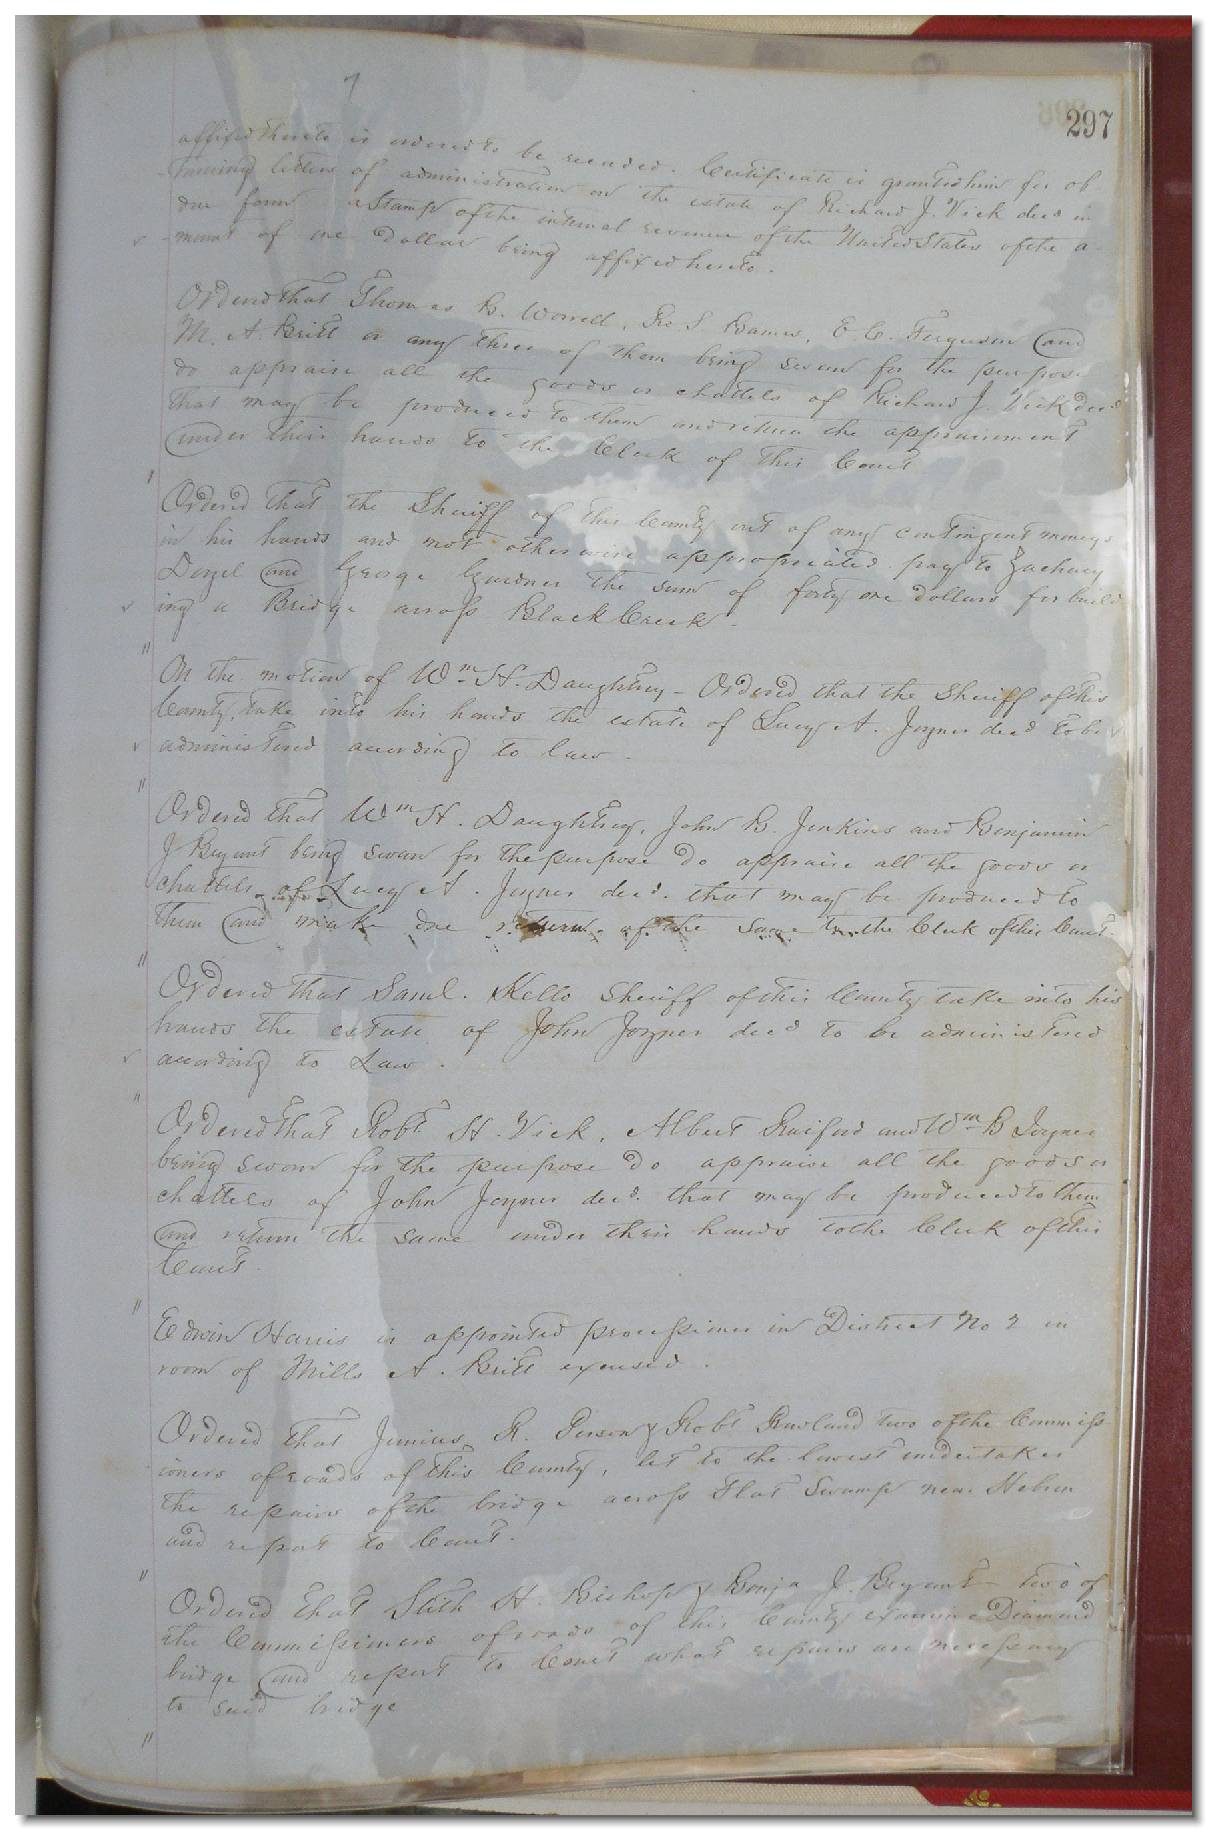 297
affixed thereto is ordered to be recorded. Certificate is granted him for ob-
taining letters of administration on the estate of Richard J. Vick decd in
due form a Stamp of the internal revenue of the United States of the a-
mount of one Dollar being affixed hereto.
Ordered that Thomas B. Worrell, Geo S. Barnes, E. C. Ferguson and
M. A. Britt or any three of them being sworn for the purpose
do appraise all the goods or chattels of Richard J. Vick decd
that may be produced to them and return the appraisement
under their hands to the Clerk of this Court
Ordered that the Sheriff of this County out of any contingent moneys
in his hands and not otherwise appropriated pay to Zachary
and George Gardner the sum of forty one dollars for build
ing a Bridge across Black Creek.
On the motion of Wm H. Daughtrey - Ordered that the Sheriff of this
County, take into his hands the estate of Lucy A. Joyner decd to be
administered according to law.
Ordered that Wm H. Daughtrey, John B. Jenkins and Benjamin
J Bryant being sworn for the purpose do appraise all the goods or
chattels of Lucy A. Joyner decd. that may be produced to
them and make due return of the same to the Clerk of this Court.
Ordered that Saml. Kello Sheriff of this County take into his
hands the estate of John Joyner decd to be administered
according to Law.
Ordered that Robt H. Vick, Albert Raiford and Wm B Joyner
being sworn for the purpose do appraise all the goods or
chattels of John Joyner decd. that may be produced to them
and return the same under their hands to the Clerk of this
Court.
Edwin Harris is appointed processioner in District No 2 in
room of Mills A. Britt excused.
Ordered that Junius R. Person & Robt Rowland two of the Commiss
ioners of roads of this County, let to the lowest undertaker
the repairs of the bridge across Flat Swamp near Hebron
and report to Court.
Ordered that Stith H. Bishop & Benja J. Bryant two of
the Commissioners of roads of this County examine Diamond
bridge and report to Court what repairs are necessary
to said bridge